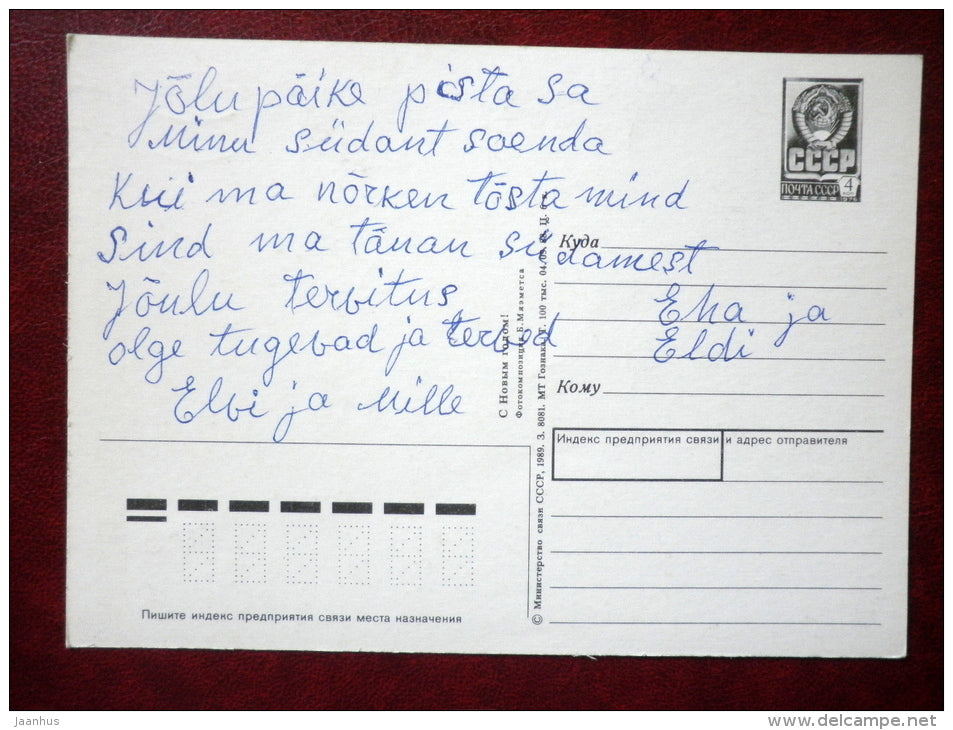 Jõlu päike pósta sa
Minu südant soenda
Kui ma nõrken tõsta mind
Sind ma tänan südamest
Jõulu tervitus
olge tugevad ja terved
Elvi ja Mille
Eha ja
Eldi
СССР
ПОЧТА СССР
4
1976
Куда
Кому
Индекс предприятия связи и адрес отправителя
С Новым годом!
Фотокомпозиция Б. Мяэметса
© Министерство связи СССР, 1989. З. 8081. МТ Гознака. 100 тыс. 04.05. Ц.
Пишите индекс предприятия связи места назначения
jaanhus
www.delcampe.net